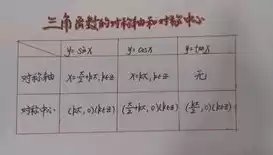 三角函数的对称轴和对称中心
y=sinx y=cosx y=tanx
对称轴 x=π/2+kπ,k∈z x=kπ,k∈z 无
对称中心 (kπ,0)(k∈z) (π/2+kπ,0)(k∈z) (kπ/2,0)(k∈z)